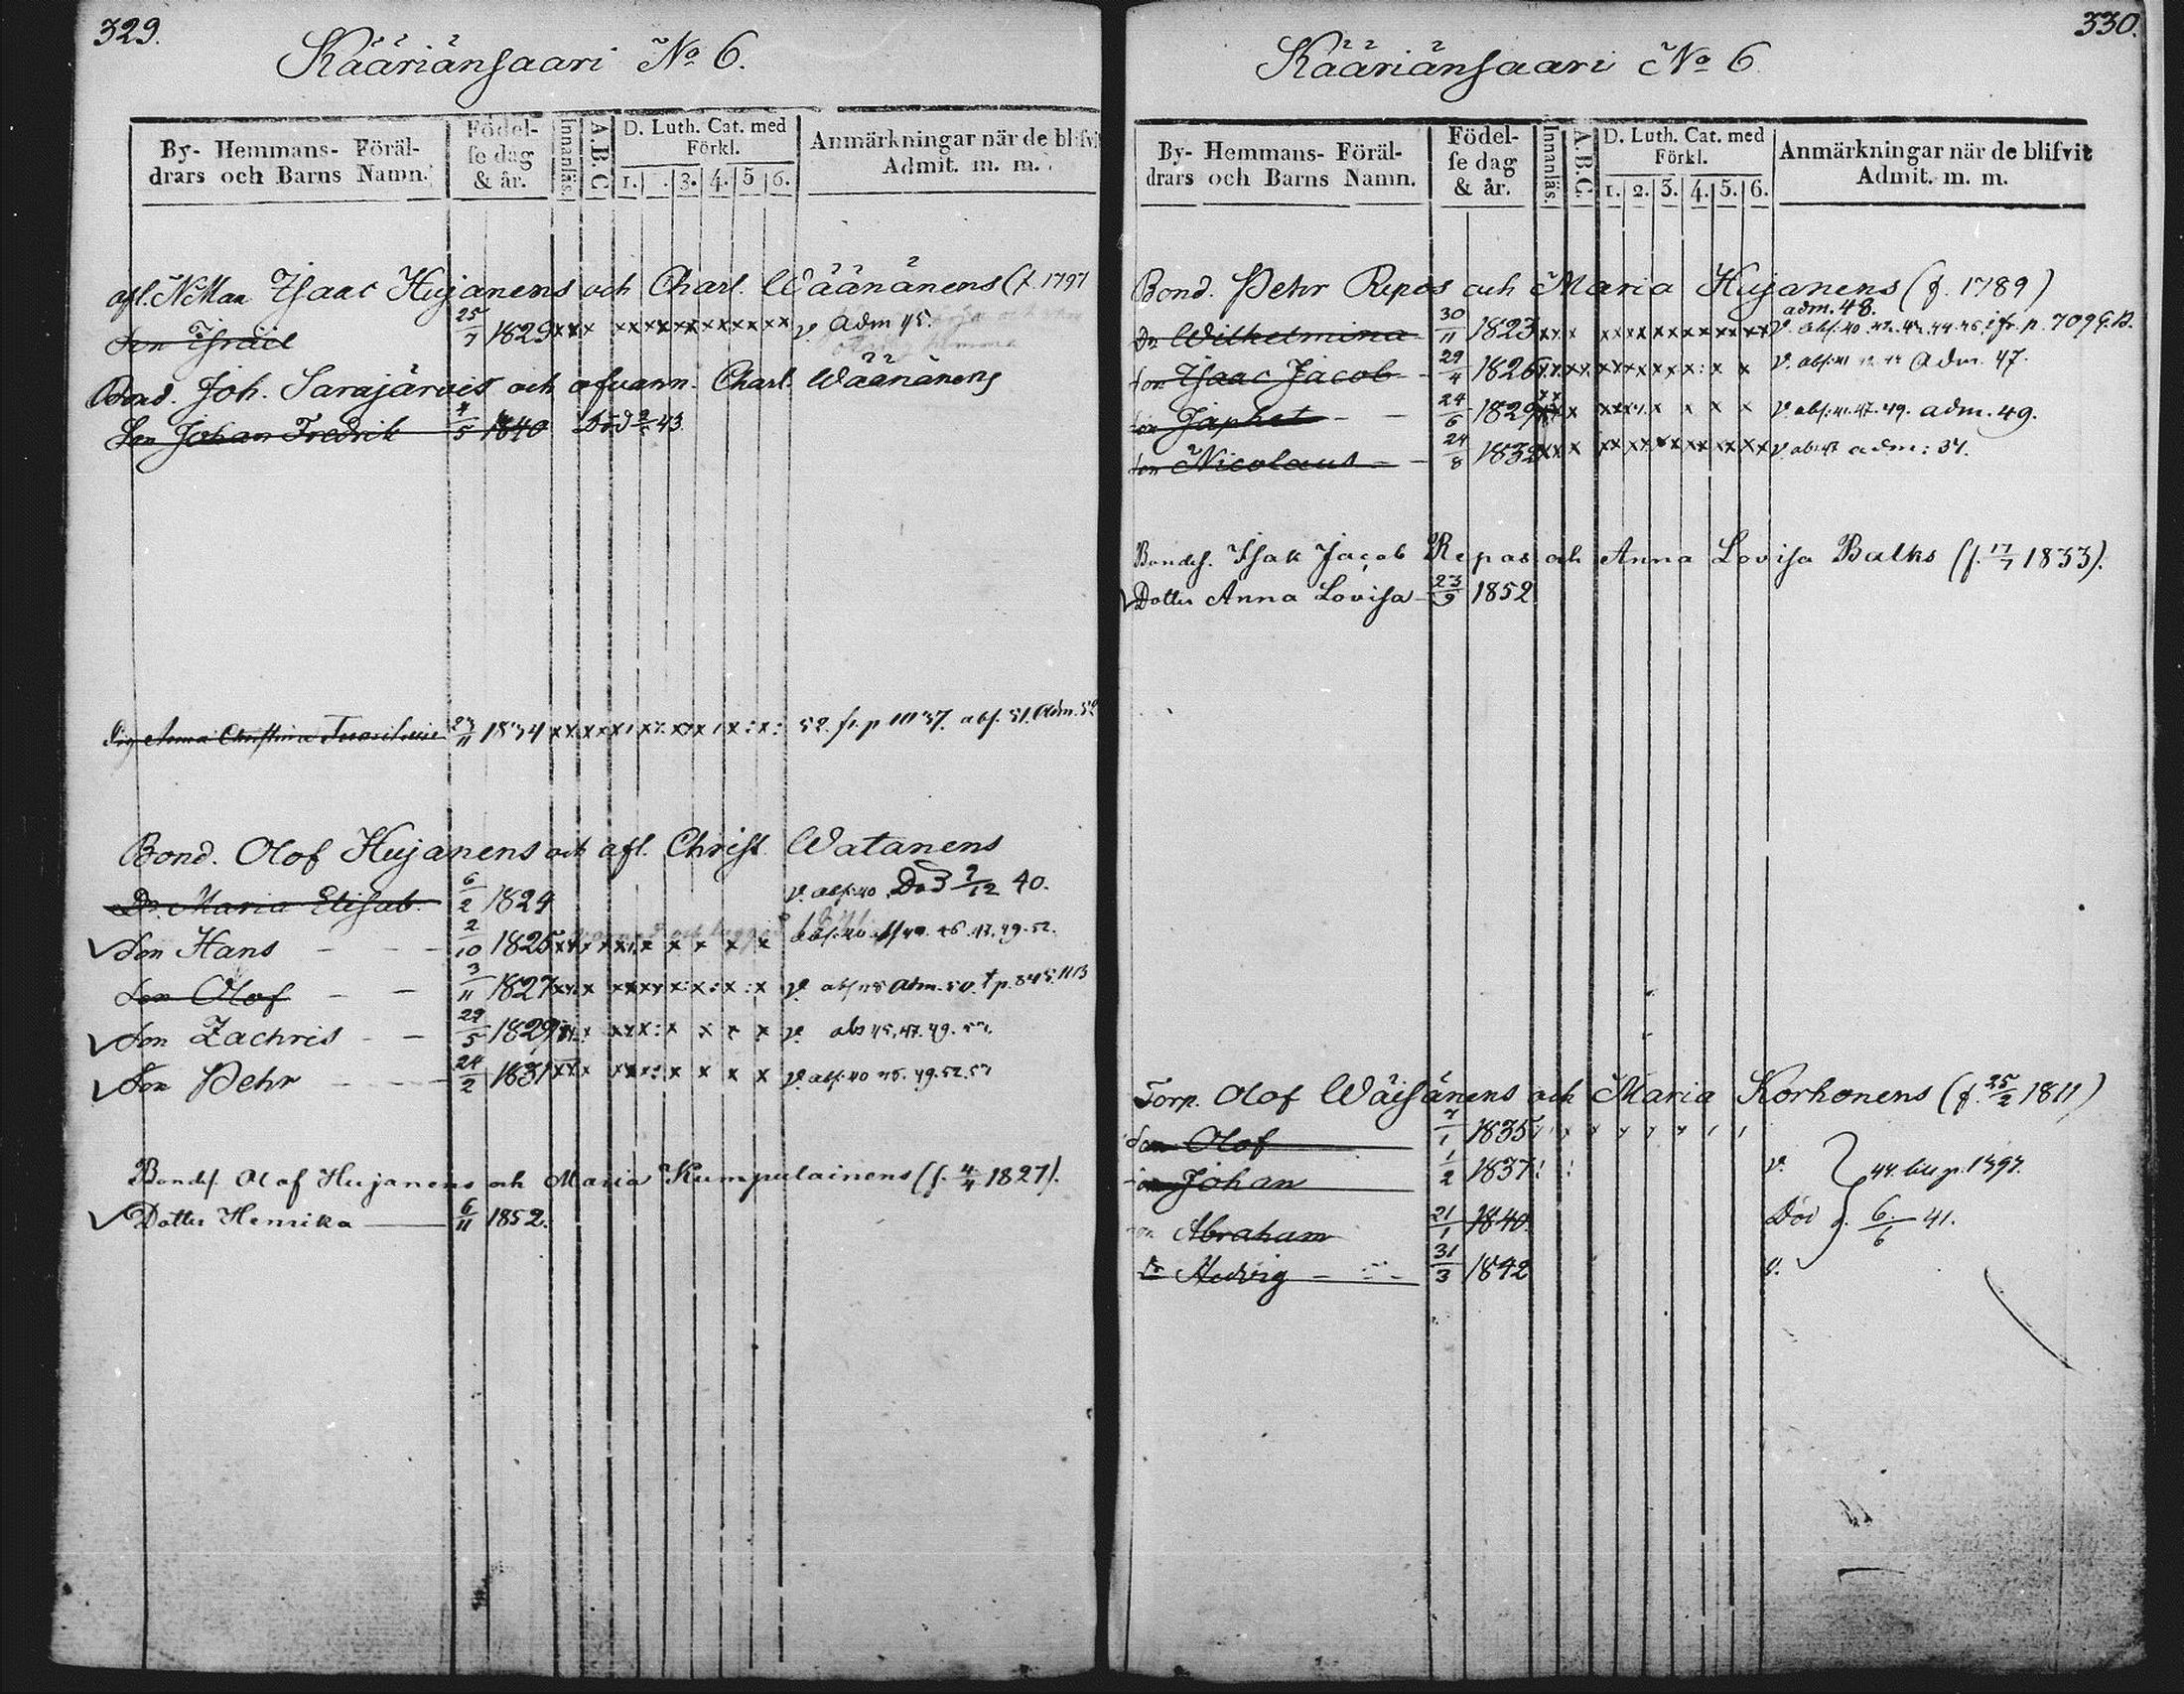 329.
Kääriänsaari No 6.
By- Hemmans- Föräl-
drars och Barns Namn.
Födel-
se dag
& år.
Innanläs.
A.B.C
D. Luth. Cat. med
Förkl.
1. . 3. 4. 5 6.
Anmärkningar när de blifvi
Admit. m. m.
afl. NMan Isaac Hujanens och Charl. Wäänänens (f. 1797
Son Israël 25/7 1829 xxx xxxxxxxxxxxx v. Adm 45.
Bond. Joh. Sarajärvis och Charl. Wäänänens
Son Johan Fredrik 4/5 1840 Död 43
Anna Christina 23/11 1834 52. fr. p 1137. abs. 51. Adm. 52
Bond. Olof Hujanens och afl. Christ. Watanens
Dr. Maria Elisab. 6/2 1824 v. abs. 40. Död 7/12 40.
Son Hans 2/10 1825 46. 47. 49. 52.
Son Olof 3/11 1827 v. abs 48 Adm. 50. p. 845.
Son Zachris 29/5 1829 v. abs 45, 47. 49. 52.
Son Pehr 24/2 1831 v. abs. 40 45. 49. 52.
Bonds. Olof Hujanens och Maria Kumpulainens (f. 4/4 1827).
Dotter Henrika 6/11 1852.
330.
Kääriänsaari No 6
By- Hemmans- Föräl-
drars och Barns Namn.
Födel-
se dag
& år.
Innanläs.
A.B.C.
D. Luth. Cat. med
Förkl.
1. 2. 3. 4. 5. 6.
Anmärkningar när de blifvit
Admit. m. m.
Bond. Pehr Repos och Maria Hujanens (f. 1789)
adm. 48.
Dr Wilhelmina 30/11 1823 v. abs. 40. p. 709
son Isaac Jacob 29/4 1826 v. abs. 41 Adm. 47.
son Japhet 24/6 1829 v. abs. 41. 47. 49. adm. 49.
son Nicolaus 24/8 1832 v. adm: 51.
Bonds. Isak Jacob Repos och Anna Lovisa Balks (f. 17/7 1833).
Dotter Anna Lovisa 23/9 1852
Torp. Olof Wäisänens och Maria Korhonens (f. 25/2 1811)
Son Olof 7/1 1835
son Johan 1/2 1837 v. 44. p. 1397.
Abraham 21/1 1840. Död d. 6/6 41.
Dr Hedvig 31/3 1842 v.